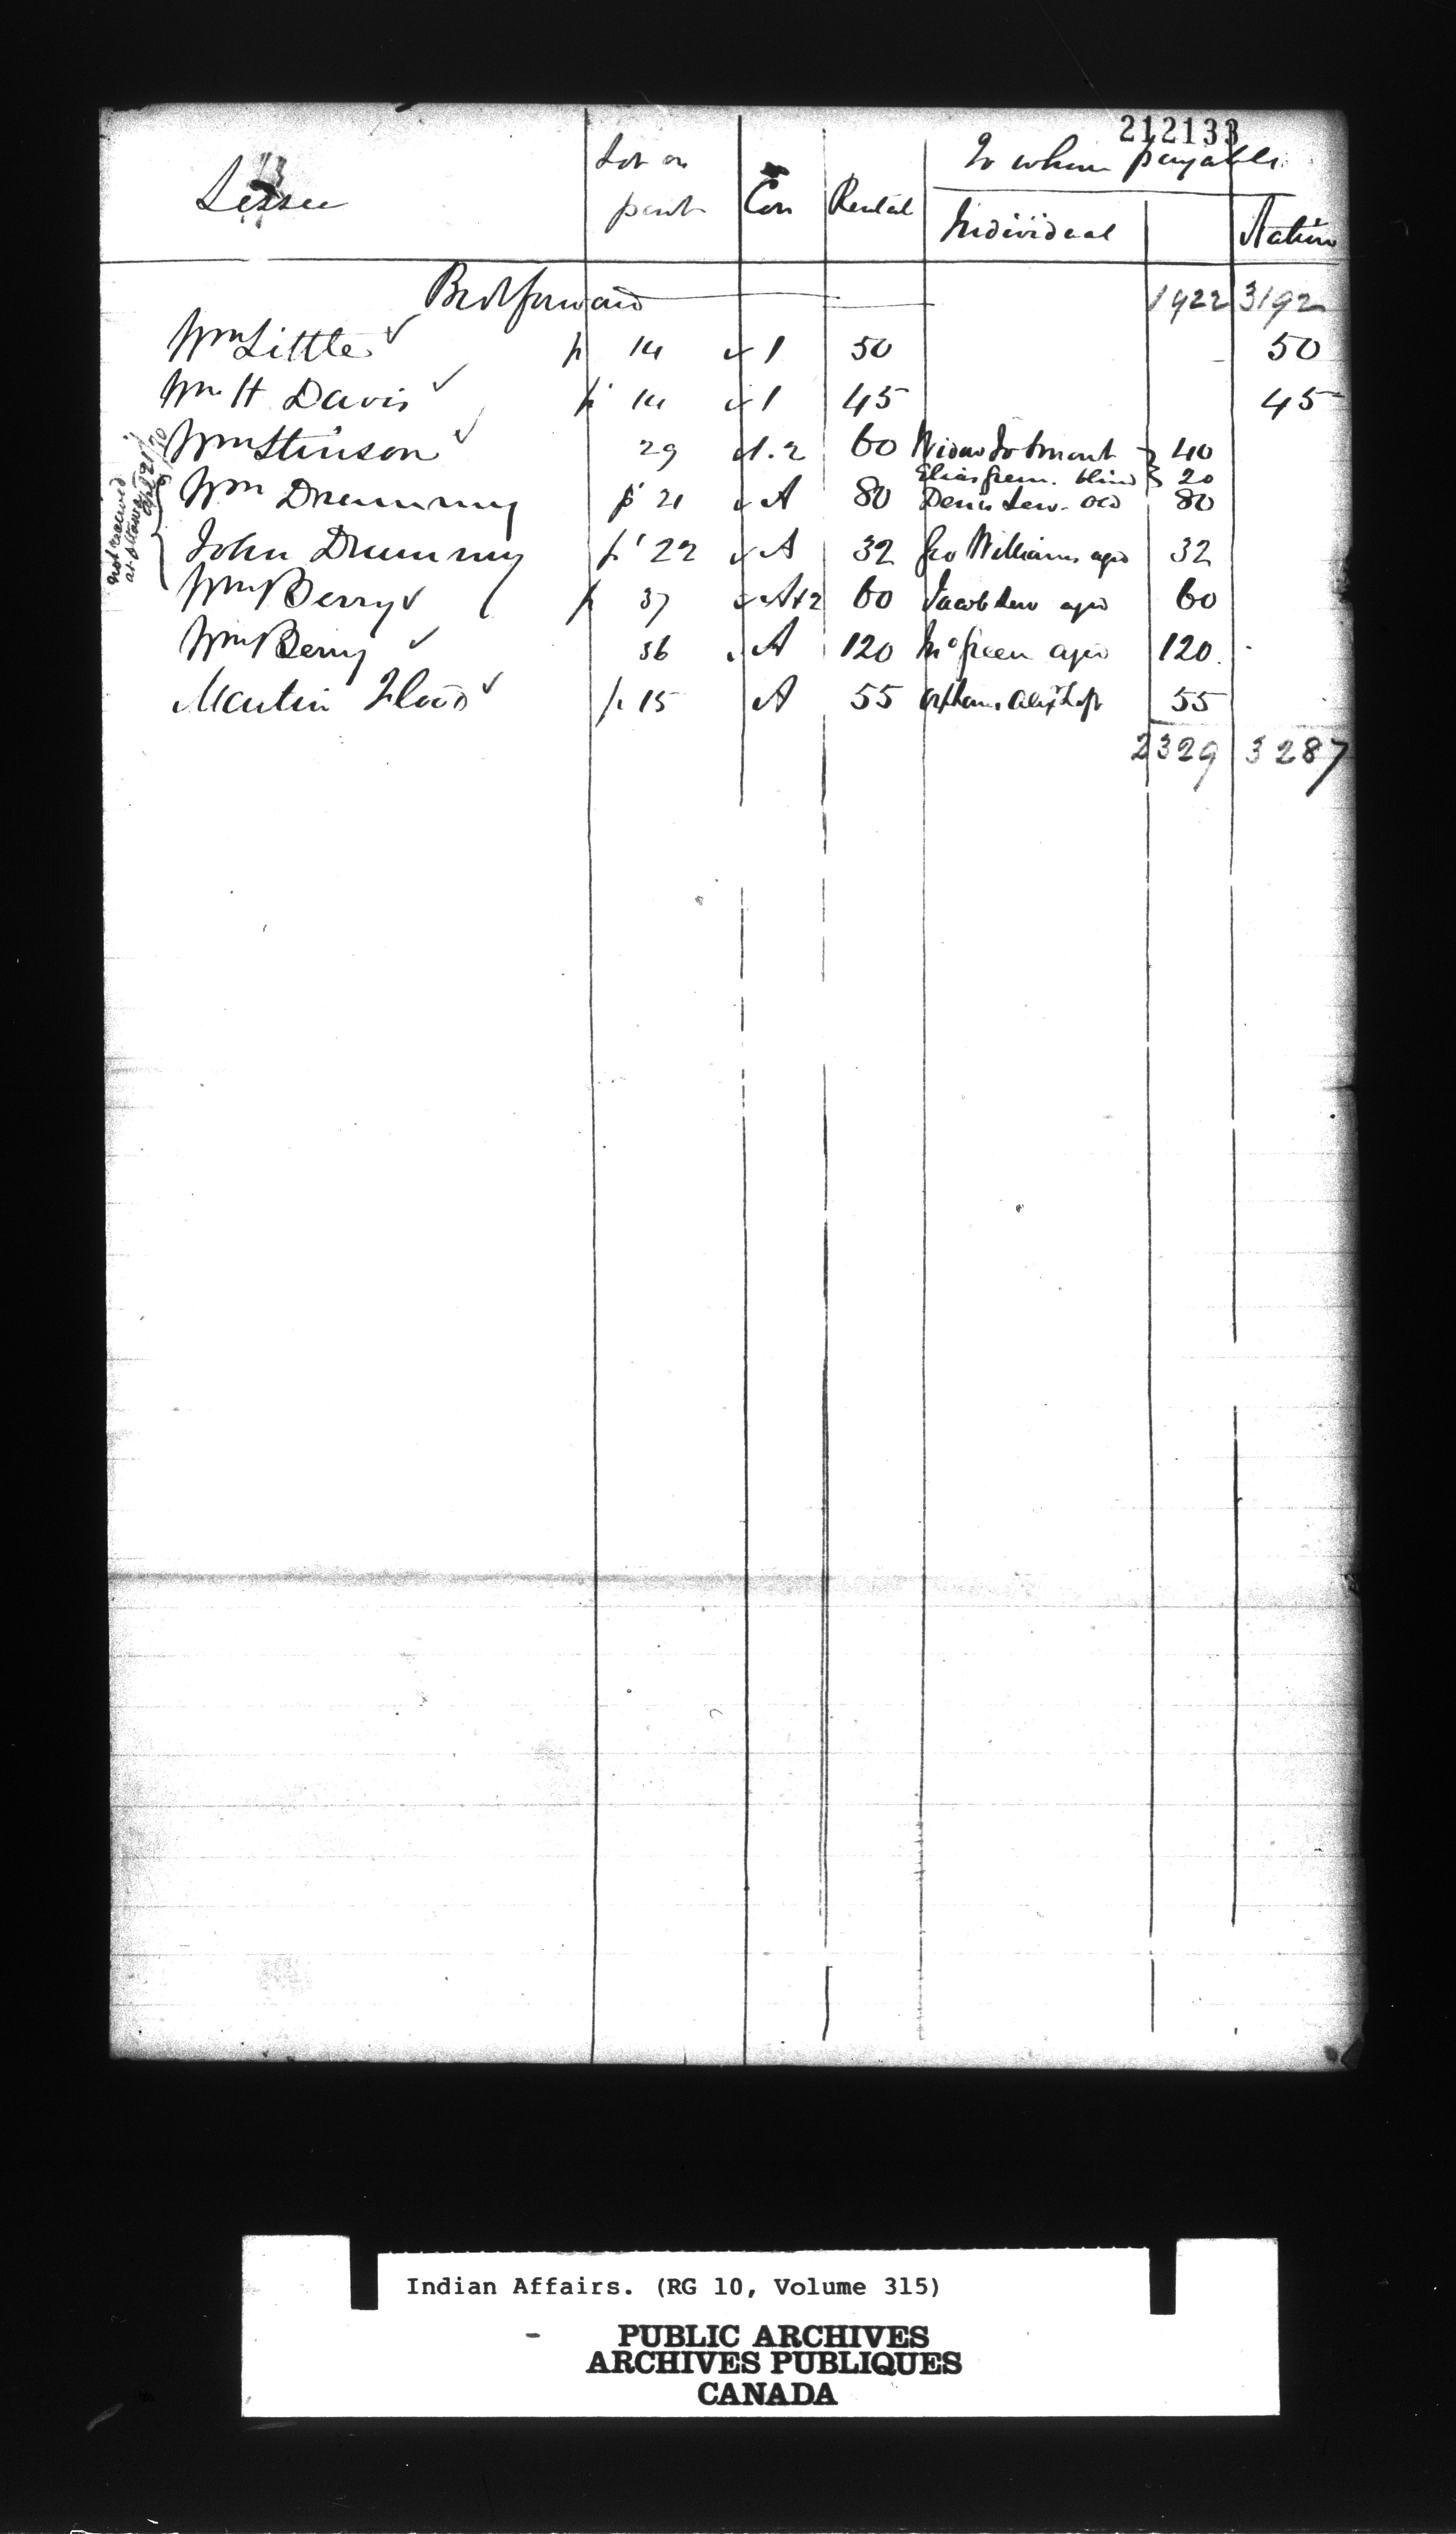 212133
Lessee Lot or part Con Rental To whom payable
Individual Nation
Brot forward 1922 3192
Wm Little ✓ p 14 ✓ 1 50 50
Wm H Davis ✓ p 14 ✓ 1 45 45
Wm Stinson ✓ 29 1.2 60 Widow 40
Elias Green blind 20
Wm Drummy p 21 ✓ A 80 Denis Lew. old 80
John Drummy p 22 ✓ A 32 Geo Williams aged 32
Wm Berry ✓ p 37 ✓ A+2 60 Jacob Lew aged 60
Wm Berry ✓ 36 A 120 Green aged 120
Martin Flood ✓ p 15 A 55 Orphans Alex Loft 55
2329 3287
not received
at Ottawa
Indian Affairs. (RG 10, Volume 315)
PUBLIC ARCHIVES
ARCHIVES PUBLIQUES
CANADA